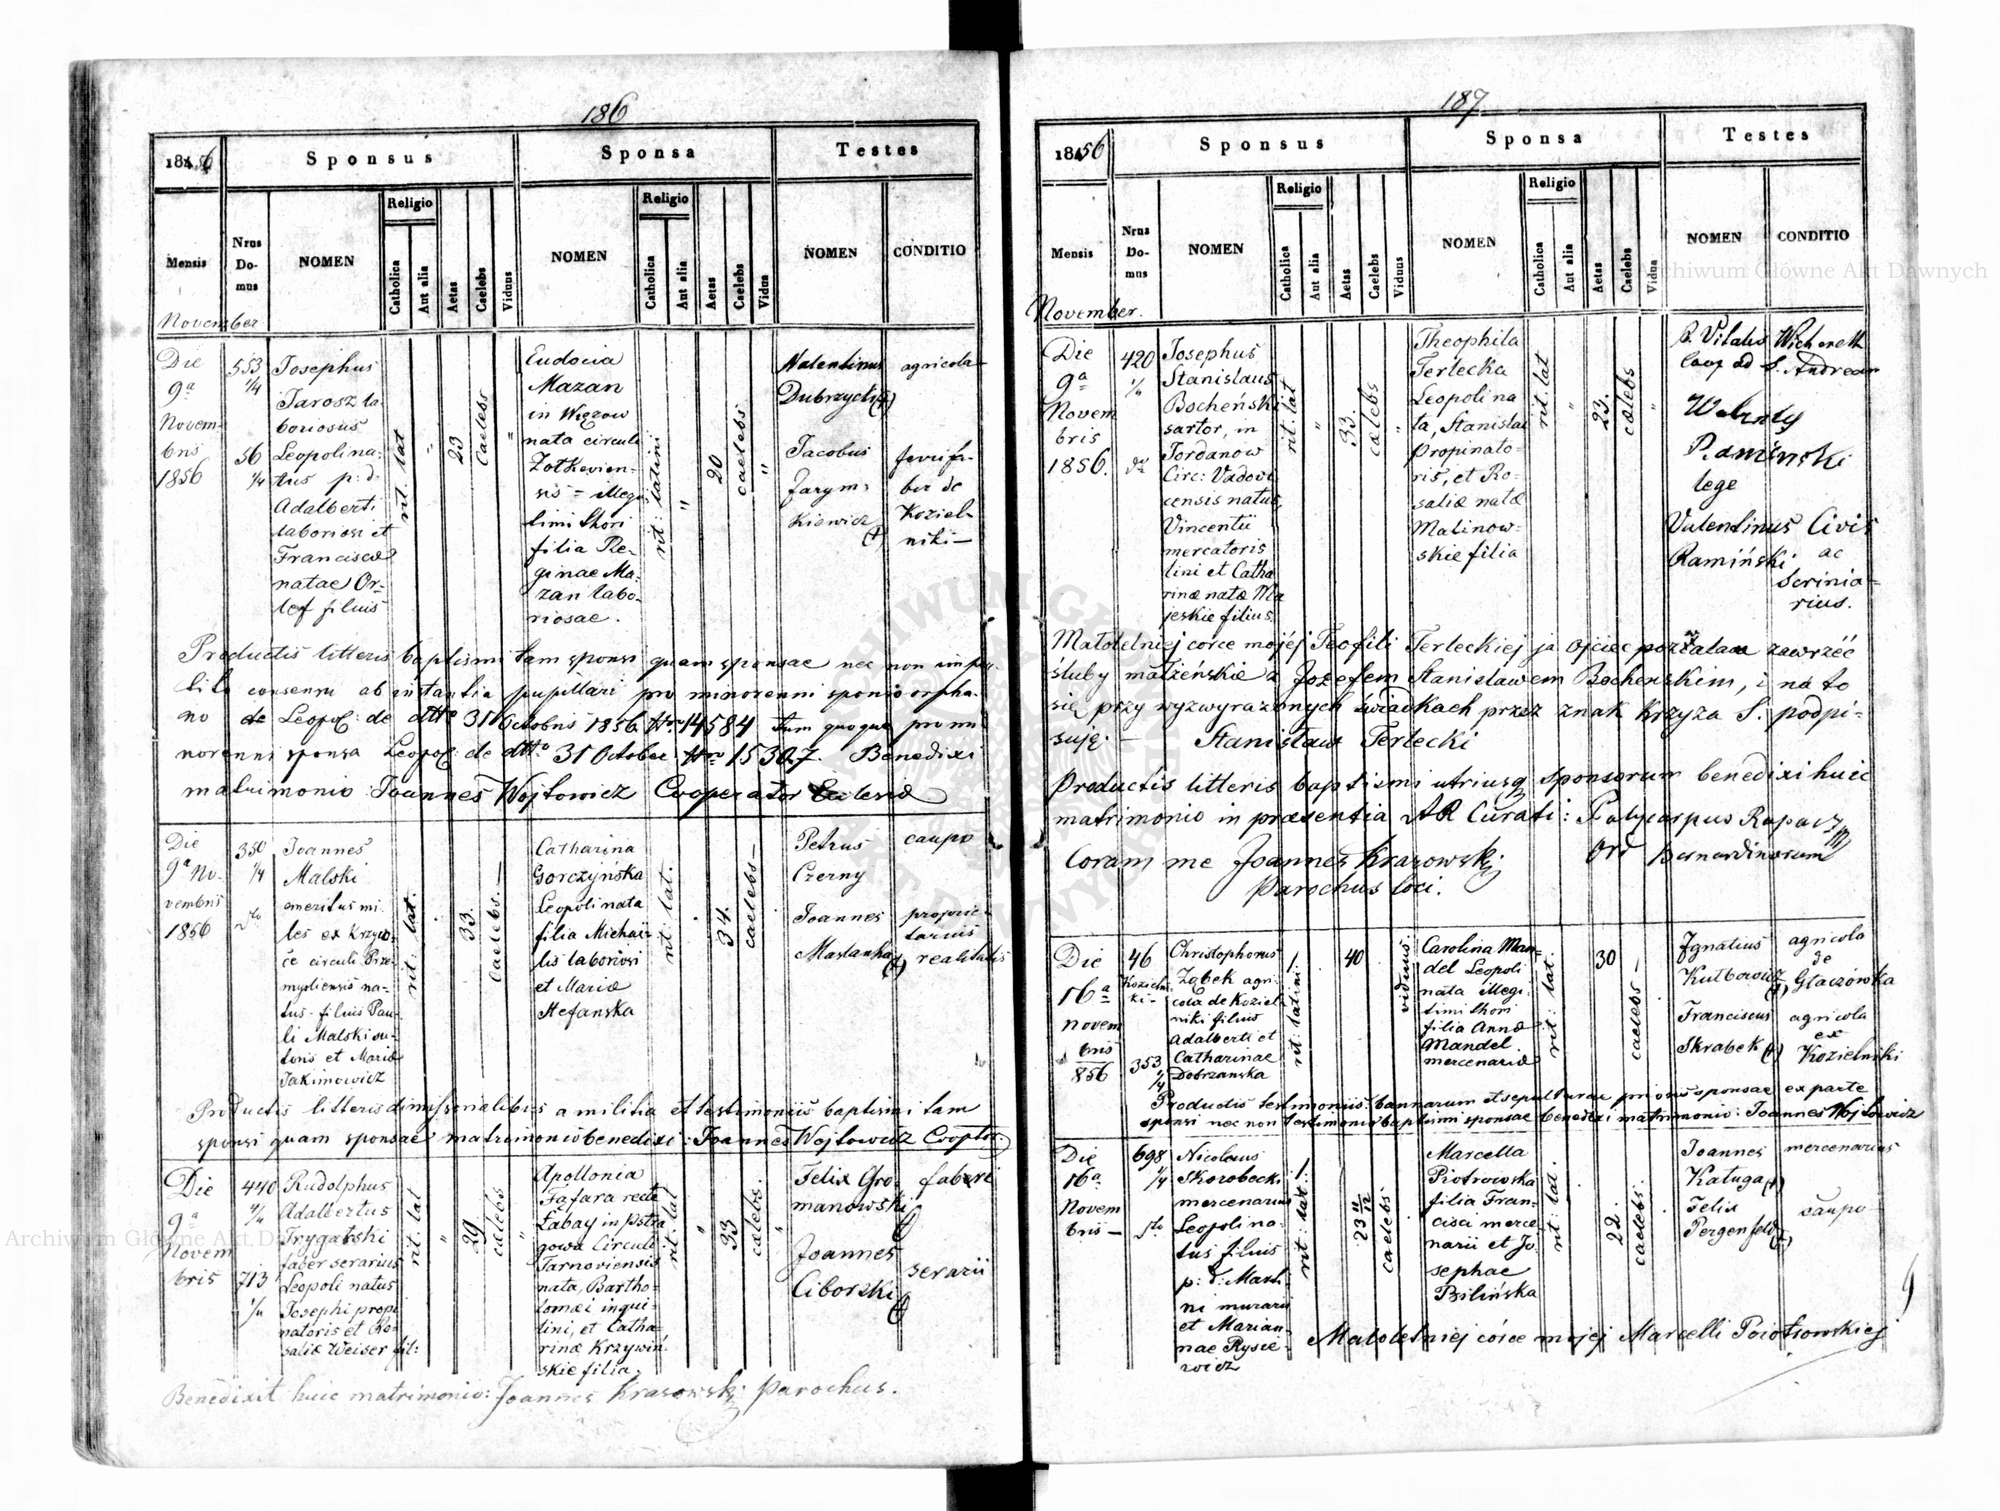 186
1856
Sponsus
Sponsa
Testes
Mensis
Nrus Domus
NOMEN
Religio
Catholica
Aut alia
Aetas
Caelebs
Viduus
NOMEN
Religio
Catholica
Aut alia
Aetas
Caelebs
Vidua
NOMEN
CONDITIO
November
Die
9a
Novem
bris
1856
553
1/4
56
1/4
Josephus
Jarosz la
boriosus
Leopoli na-
tus p: d:
Adalberti
laboriosi et
Franciscae
natae Or-
lef filius
rit. lat
23
Caelebs
Eudocia
Mazan
in Wiązow
nata circuli
Zolkievien-
sis = illegi
timi thori
filia Re-
ginae Ma-
zan labo-
riosae.
rit: latini
20
caelebs
Valentinus
Dubrzycki (+)
Jacobus
Jarym-
kiewicz
(+)
agricola
Koziel-
niki
Productis litteris baptismi tam sponsi quam sponsae nec non
consensu ab instantia pupillari pro minorenni sponso orpha-
no de Leopol: de dtto 31 Octobris 1856 Nro 14584 tum quoque pro mi
norenni sponsa Leopol: de dtto 31 October Nro 15307. Benedixi
matrimonio Joannes Wojtowicz Cooperator Ecclesiae
Die
9a No-
vembris
1856
350
1/4
dto
Joannes
Malski
emeritus mi-
les ex Krzyw-
če circuli Prze-
mysliensis na-
tus - filius Pau-
li Malski su-
toris et Mariae
Jakimowicz
rit: lat.
33.
Caelebs.
Catharina
Gorczyńska
Leopoli nata
filia Michaë-
lis laboriosi
et Mariae
Stefanska
rit: lat.
34.
caelebs
Petrus
Czerny
Joannes
Maslanka (+)
caupo
proprie-
tarius
realitatis
Productis litteris dimissorialibus a militia et testimoniis baptismi tam
sponsi quam sponsae matrimonio benedixi: Joannes Wojtowicz Cooptor.
Die
9a
Novem
bris
440
2/4
713
1/4
Rudolphus
Adalbertus
Trygalski
faber serarius
Leopoli natus
Josephi propi
natoris et Ro-
saliae Weiser fil:
rit: lat
29
caelebs
Apollonia
Fafara recte
Łabay in Pstrą
gowa Circuli
Tarnoviensis
nata, Bartho-
lomaei inqui-
lini, et Catha-
rinae Krzywiń-
skie filia.
rit: lat
33
caelebs.
Felix Gro-
manowski
Joannes
Ciborski
fabri
serarii
Benedixit huic matrimonio: Joannes Krasowski Parochus.
187
1856
Sponsus
Sponsa
Testes
Mensis
Nrus Domus
NOMEN
Religio
Catholica
Aut alia
Aetas
Caelebs
Viduus
NOMEN
Religio
Catholica
Aut alia
Aetas
Caelebs
Vidua
NOMEN
CONDITIO
November.
Die
9a
Novem
bris
1856.
420
1/4
Josephus
Stanislaus
Bocheński
sartor, in
Jordanow
Circ: Vadovi
censis natus,
Vincentii
mercatoris
lini et Catha
rinae natae Ma
jeskie filius
rit. lat
33.
caelebs
Theophila
Terlecka
Leopoli na
ta, Stanislai
propinato-
ris, et Ro-
saliae natae
Malinow-
skie filia
rit. lat
23.
caelebs
P. Vitalis
Coop ad S. Andream
Walenty
Kaminski
lege
Valentinus Civis
Kamiński ac
Scrinia-
rius.
Małoletniej corce mojéj Teofili Terleckiej ja ojciec pozwalam zawrzéć
śluby małżeńskie z Jozefem Stanisławem Bochenskim, i na to
się przy wyzwyrażonych świadkach przez znak krzyza S. podpi-
suję: — Stanisław Terlecki
Productis litteris baptismi utriusq sponsorum benedixi huic
matrimonio in praesentia AR Curati: Polycarpus Rapacz
Ord Bernardinorum
Coram me Joannes Krasowski
Parochus loci.
Die
16a
novem
bris
856
46
Kozielni
ki
353
1/4
Christophorus
Ząbek agri-
cola de Koziel-
niki filius
Adalberti et
Catharinae
Dobrzanska
rit: latini
40
viduus.
Carolina Man-
del Leopoli
nata illegi-
timi thori
filia Annae
Mandel
mercenariae
rit: lat.
30
caelebs
Ignatius
Kulbowicz (+)
Franciscus
Skrabek (+)
agricola
de
Glaczówka
agricola
ex
Kozielniki
Productis testimoniis: bannorum et sepulturae prioris sponsae ex parte
sponsi nec non testimonio baptismi sponsae benedixi matrimonio: Joannes Wojtowicz
Die
16a
Novem
bris
698
1/4
dto
Nicolaus
Skorobecki
mercenarius
Leopoli na-
tus filius
p: d: Marti-
ni murarii
et Marian-
nae Rysie-
wicz
rit: lat:
23 11/12
caelebs
Marcella
Piotrowska
filia Fran-
cisci merce
narii et Jo-
sephae
Bilińska
rit: lat.
22.
caelebs.
Joannes
Kaluga (+)
Felix
Pergenfeld (+)
mercenarius
caupo
Małoletniej córce mojej Marcelli Piotrowskiej
Archiwum Główne Akt Dawnych
Archiwum Główne Akt Dawnych